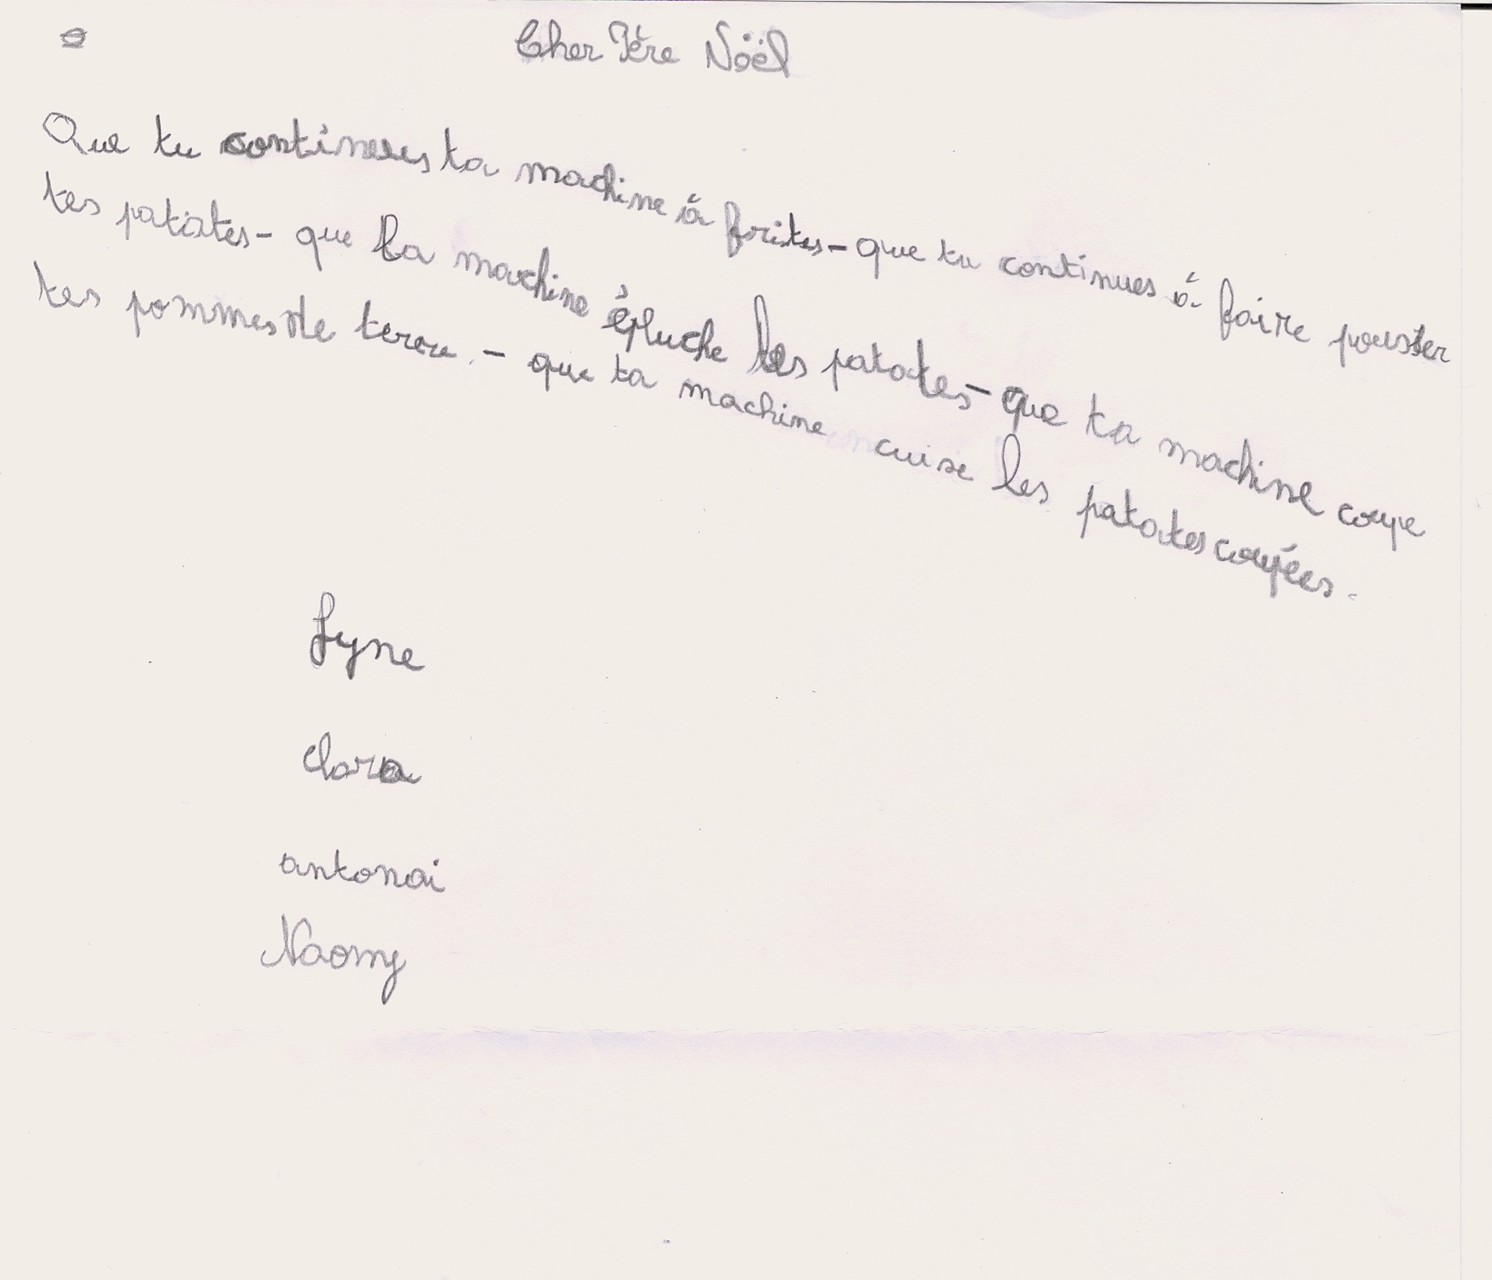 Cher Père Nöël
Que tu continues ta machine à frites - que tu continues à faire pousser
tes patates - que ta machine épluche les patates - que ta machine coupe
tes pommes de terre. - que ta machine cuise les patates coupées.
Lyne
Clara
antonai
Naomy